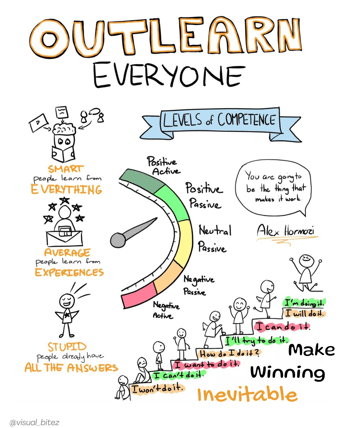 OUTLEARN
EVERYONE
LEVELS of COMPETENCE
SMART
people learn from
EVERYTHING
AVERAGE
people learn from
EXPERIENCES
STUPID
people already have
ALL THE ANSWERS
Positive
Active
Positive
Passive
Neutral
Passive
Negative
Passive
Negative
Active
You are going
to be the thing that
makes it work
Alex Hormozi
I'm doing it.
I will do it.
I can do it.
I'll try to do it.
How do I do it?
I want to do it.
I can't do it.
I won't do it.
Make
Winning
Inevitable
@visual_bitez